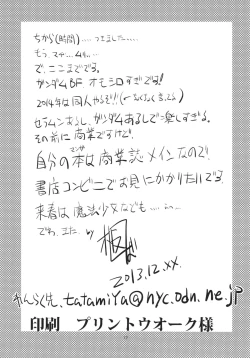 ちから(時間)....つきました......
もう、マァ...ム.....
で、ここまでです。
ガンダムBF オモシロすぎです!
2014年は同人やるぞ!!
セラムンあるし、ガンダムあるしで楽しすぎる。
その前に商業ですけど。
自分の本は商業誌メインなので
マンガ
書店コンビニでお見にかかりたいです
来春は魔法少女なでも......
でわ、また by
2013.12.xx.
れんらく先. tatamiya@nyc.odn.ne.jp
印刷 プリントウオーク様